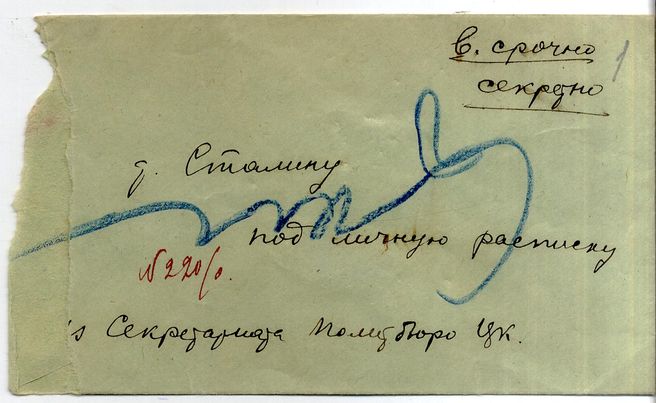 в. срочно
секретно
1
т. Сталину
под личную расписку
№220/о.
из Секретариата Политбюро ЦК.